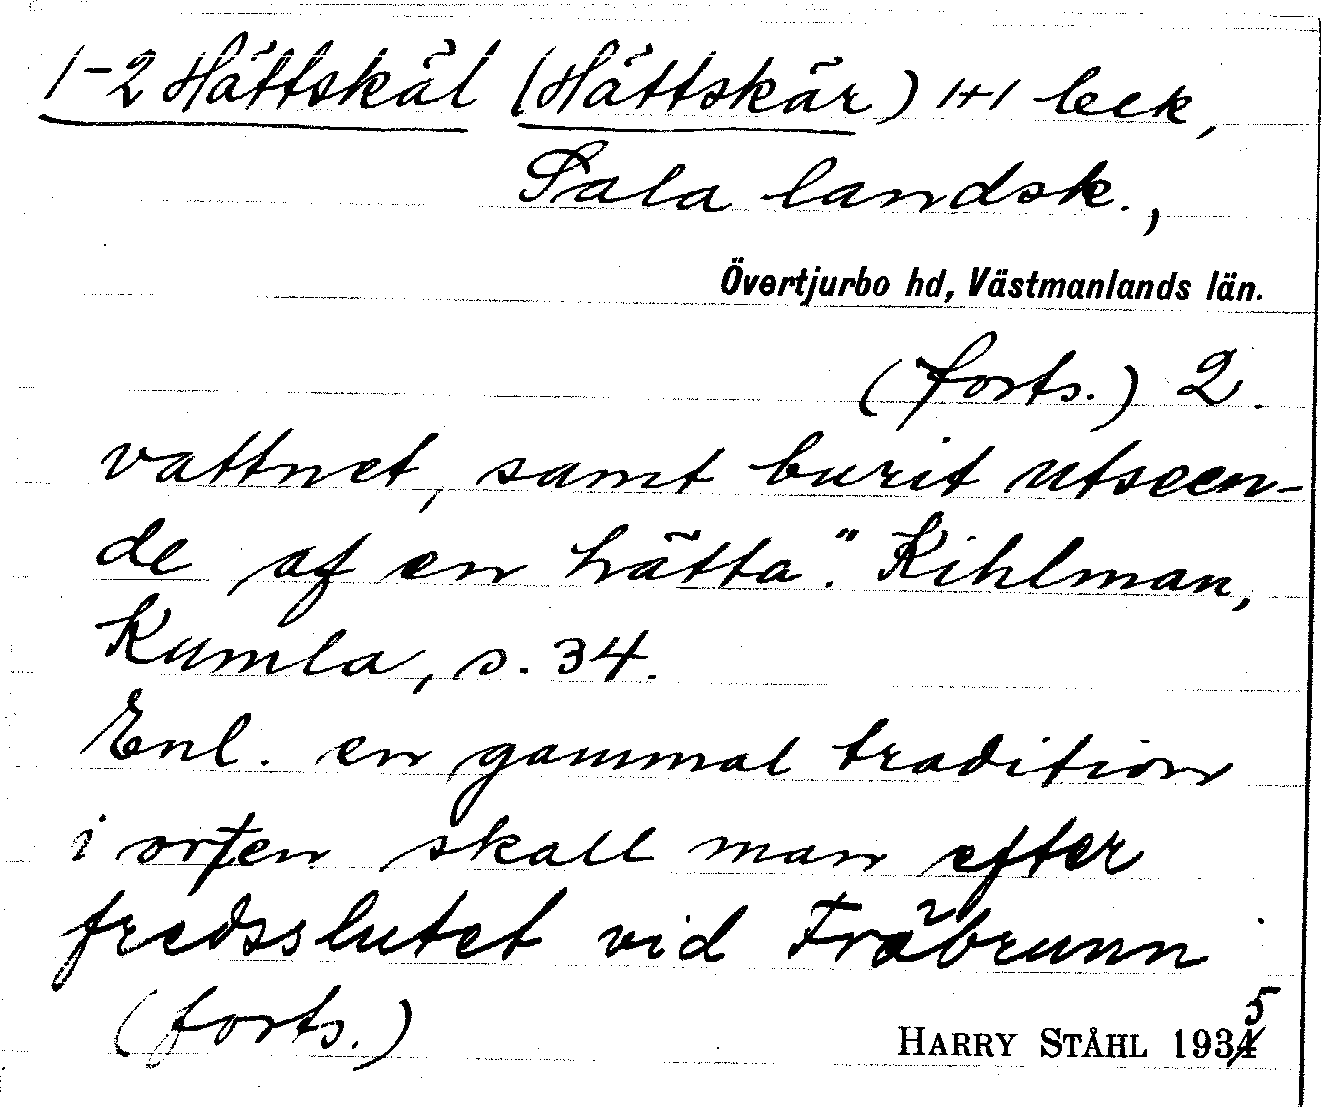 1-2 Hättskäl (Hättskär) 1+1 beck,
Sala landsk.,
Övertjurbo hd, Västmanlands län.
(forts.) 2.
vattnet, samt burit utseen-
de af en hätta". Kihlman,
Kumla, s. 34.
Enl. en gammal tradition
i orten skall man efter
fredsslutet vid Fräbrunn
(forts.)
HARRY STÅHL 1935